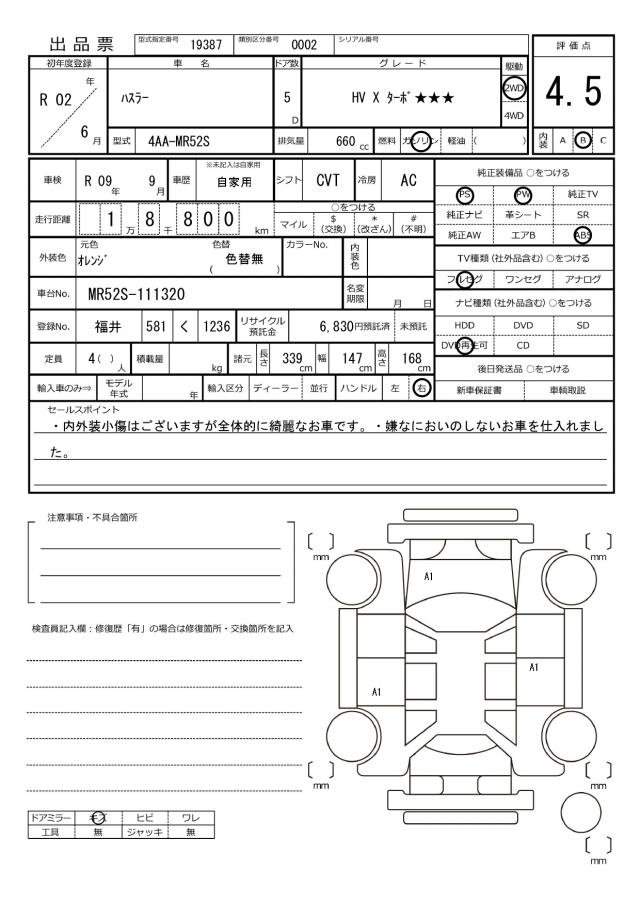 出品票
型式指定番号 19387 類別区分番号 0002 シリアル番号
初年度登録 車名 ドア数 グレード 駆動 評価点
R 02 年 6 月
ﾊｽﾗｰ
5 D
HV X ﾀｰﾎﾞ★★★
2WD
4WD
4.5
型式 4AA-MR52S 排気量 660 cc 燃料 ガソリン 軽油 ( )
内装 A B C
車検 R 09 年 9 月 車歴 ※未記入は自家用 自家用 シフト CVT 冷房 AC
純正装備品 ○をつける
PS PW 純正TV
純正ナビ 革シート SR
純正AW エアB ABS
走行距離 1 万 8 千 8 0 0 km
○をつける
マイル $(交換) *(改ざん) #(不明)
外装色 元色 ｵﾚﾝｼﾞ 色替 ( 色替無 ) カラーNo. 内装色
TV種類(社外品含む)○をつける
フルセグ ワンセグ アナログ
車台No. MR52S-111320 名変期限 月 日
ナビ種類(社外品含む)○をつける
HDD DVD SD
DVD再生可 CD
登録No. 福井 581 く 1236 リサイクル預託金 6,830円預託済 未預託
定員 4( ) 人 積載量 kg 諸元 長さ 339 cm 幅 147 cm 高さ 168 cm
後日発送品 ○をつける
新車保証書 車輌取説
輸入車のみ⇒ モデル年式 年 輸入区分 ディーラー 並行 ハンドル 左 右
セールスポイント
・内外装小傷はございますが全体的に綺麗なお車です。・嫌なにおいのしないお車を仕入れまし
た。
注意事項・不具合箇所
mm mm
A1
検査員記入欄：修復歴「有」の場合は修復箇所・交換箇所を記入
A1
A1
mm mm
ドアミラー キズ ヒビ ワレ
工具 無 ジャッキ 無
mm